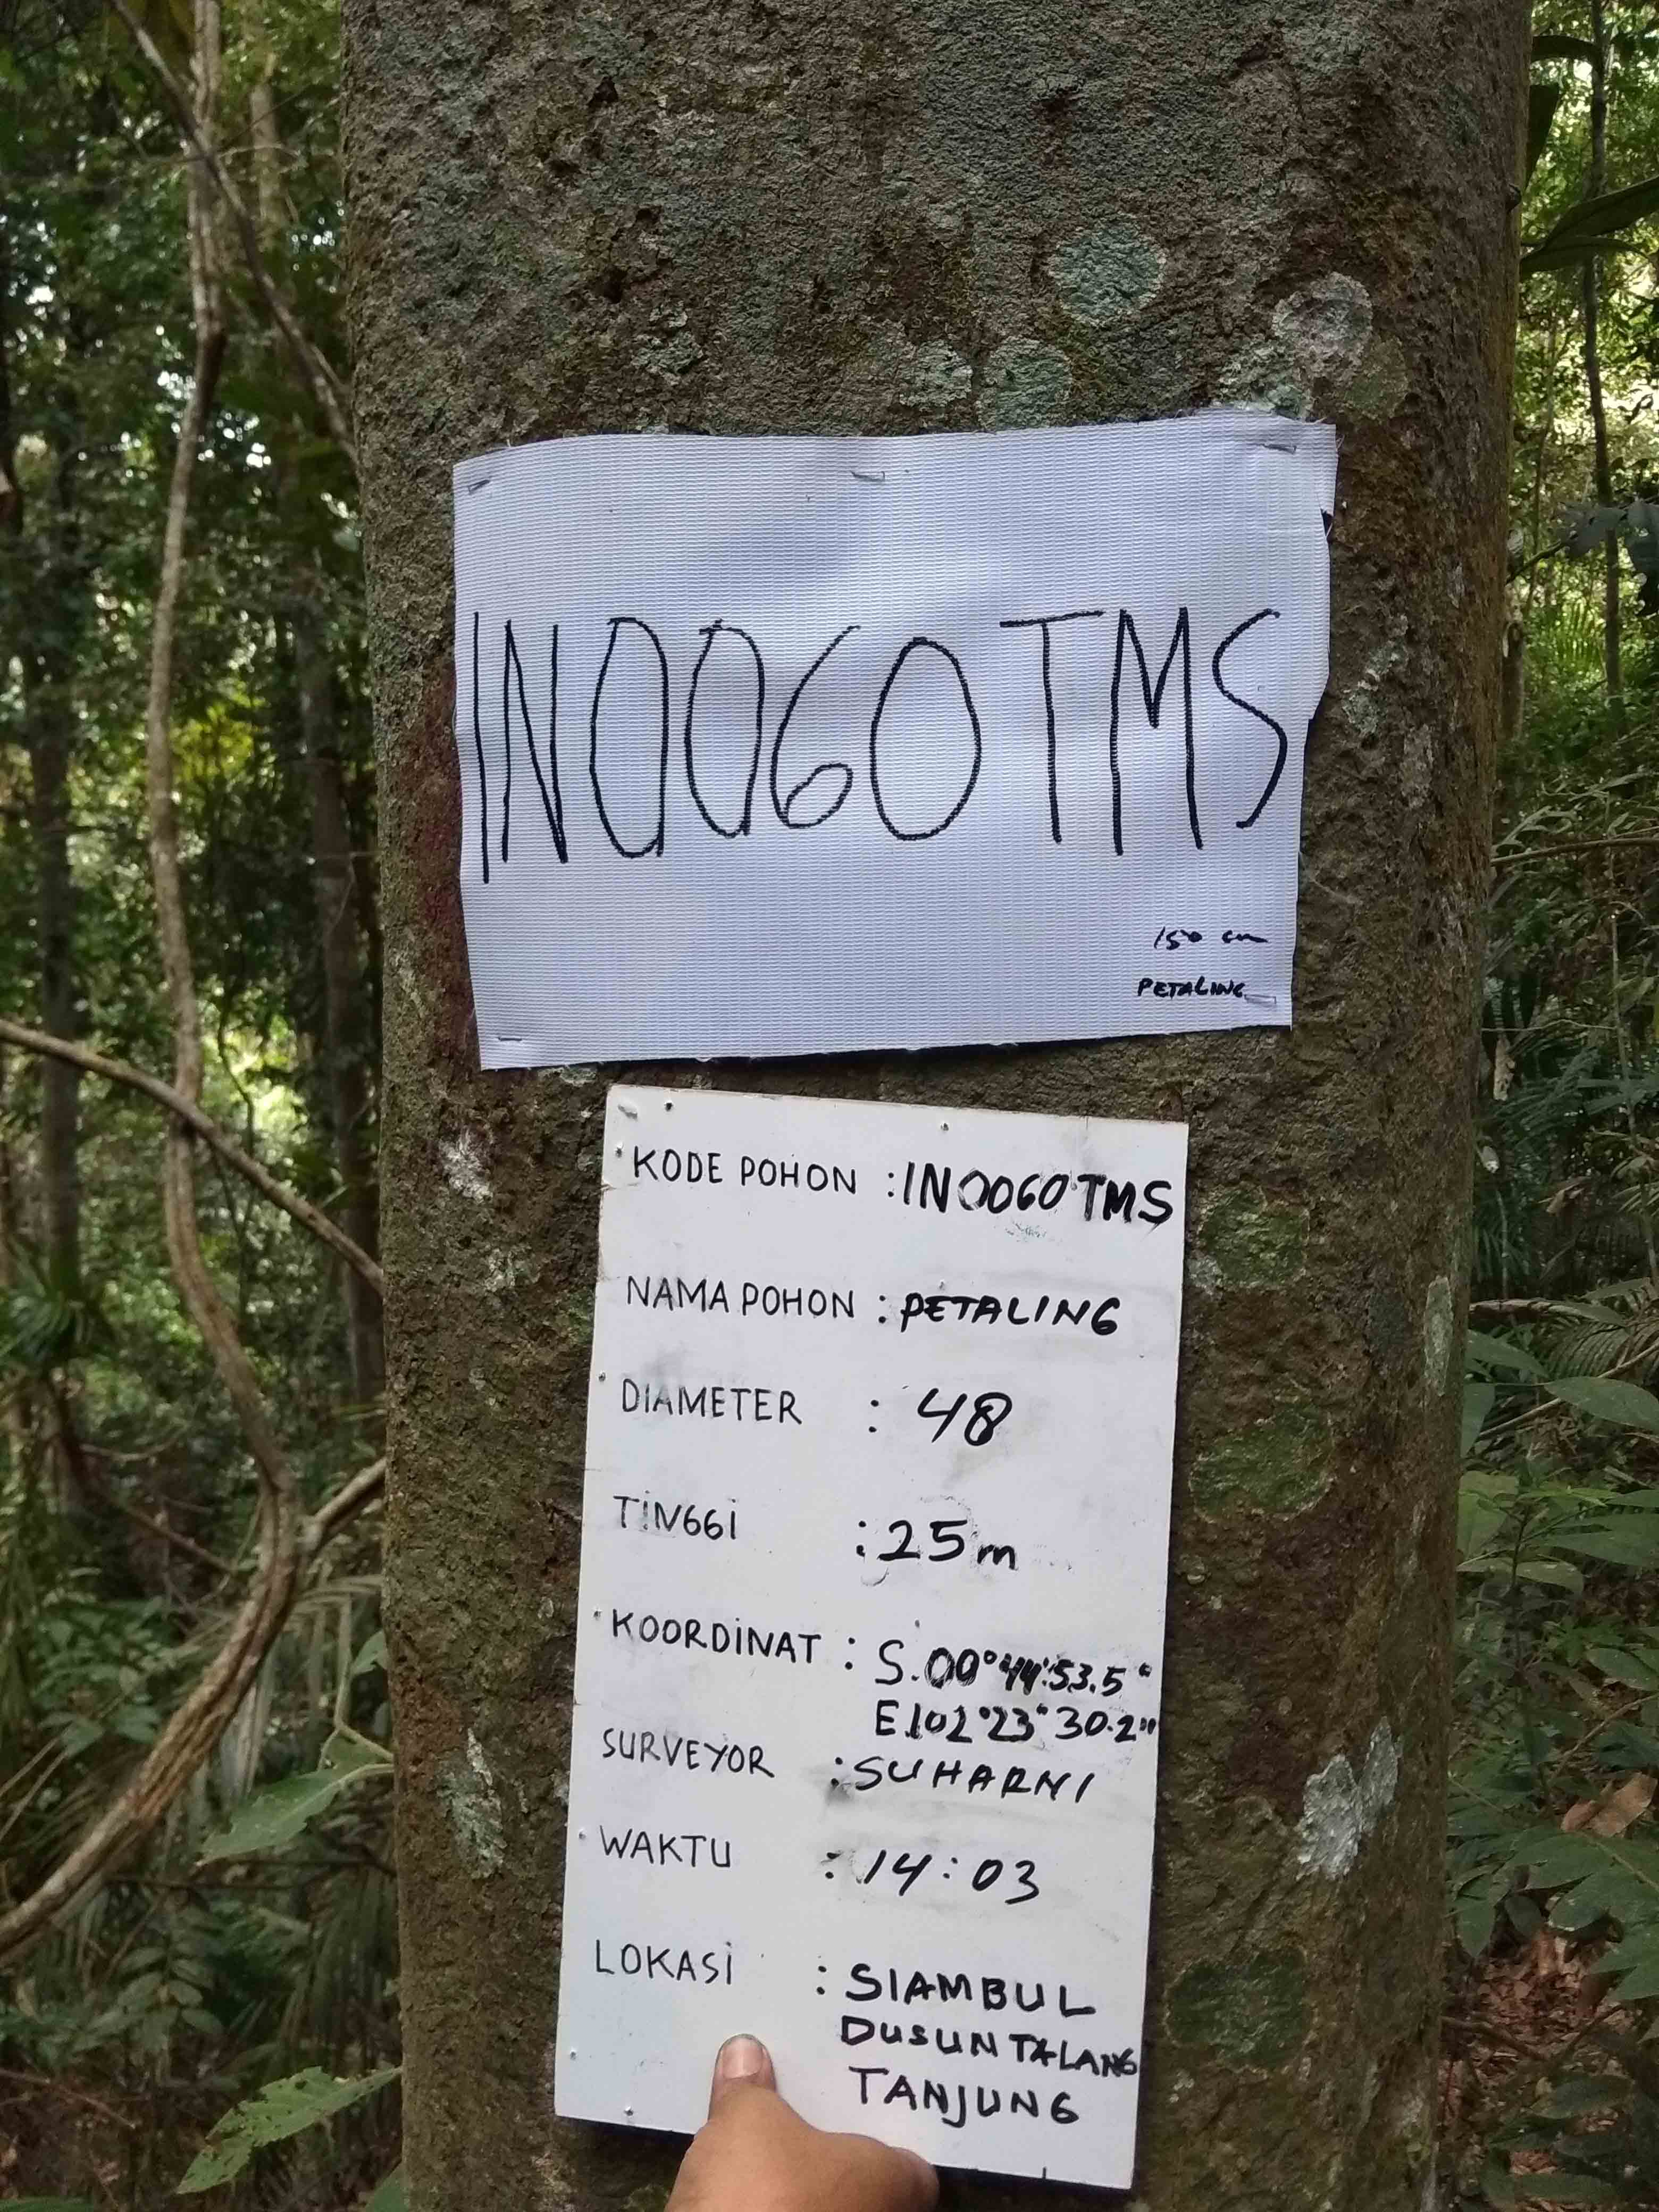 IN0060TMS
150 cm
PETALING
KODE POHON : IN0060 TMS
NAMA POHON : PETALING
DIAMETER : 48
TINGGI : 25m
KOORDINAT : S. 00° 44' 53.5"
E. 102° 23" 30.2"
SURVEYOR : SUHARNI
WAKTU : 14:03
LOKASI : SIAMBUL
DUSUN TALANG
TANJUNG